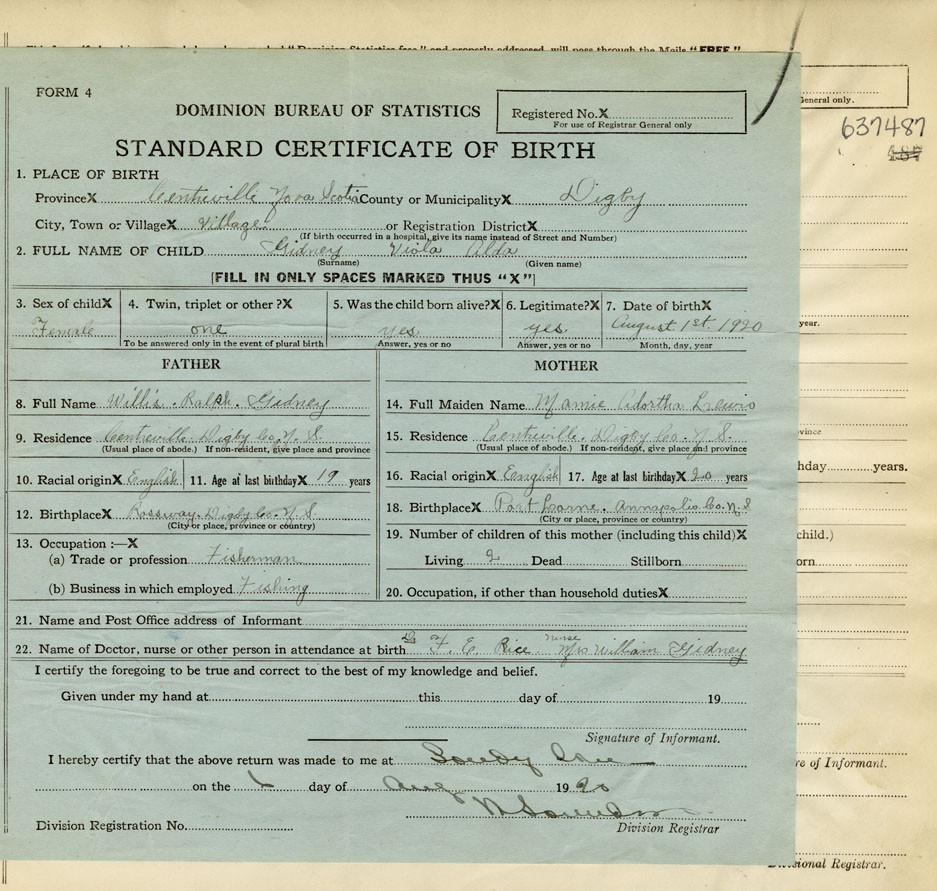 "Dominion Statistics free" and properly addressed, will pass through the Mails "FREE"
FORM 4
DOMINION BUREAU OF STATISTICS
Registered No.X
For use of Registrar General only
General only.
637487
STANDARD CERTIFICATE OF BIRTH
1. PLACE OF BIRTH
ProvinceX Centreville Nova Scotia County or MunicipalityX Digby
City, Town or VillageX Village or Registration DistrictX
(If birth occurred in a hospital, give its name instead of Street and Number)
2. FULL NAME OF CHILD Gidney Viola Alda
(Surname) (Given name)
[FILL IN ONLY SPACES MARKED THUS "X"]
3. Sex of childX 4. Twin, triplet or other ?X 5. Was the child born alive?X 6. Legitimate?X 7. Date of birthX
Female one yes yes. August 1st. 1920
year.
To be answered only in the event of plural birth Answer, yes or no Answer, yes or no Month, day, year
FATHER MOTHER
8. Full Name Willis. Ralph. Gidney
14. Full Maiden Name Mamie Adortha Lewis
9. Residence Centreville. Digby Co. N. S.
(Usual place of abode.) If non-resident, give place and province
15. Residence Centreville. Digby Co. N. S.
(Usual place of abode.) If non-resident, give place and province
vince
10. Racial originX English 11. Age at last birthdayX 19 years
16. Racial originX English 17. Age at last birthdayX 20 years
hday years.
12. BirthplaceX Rossway. Digby Co. N. S.
(City or place, province or country)
18. BirthplaceX Port Lorne. Annapolis Co. N. S
(City or place, province or country)
13. Occupation :—X
(a) Trade or profession Fisherman
(b) Business in which employed Fishing
19. Number of children of this mother (including this child)X
child.)
Living 2 Dead Stillborn
orn
20. Occupation, if other than household dutiesX
21. Name and Post Office address of Informant
22. Name of Doctor, nurse or other person in attendance at birth Dr F. E. Rice nurse Mrs William Gidney
I certify the foregoing to be true and correct to the best of my knowledge and belief.
Given under my hand at this day of 19
Signature of Informant.
re of Informant.
I hereby certify that the above return was made to me at Sandy Cove
on the 1 day of Aug 1920
Division Registration No.
Division Registrar
sional Registrar.